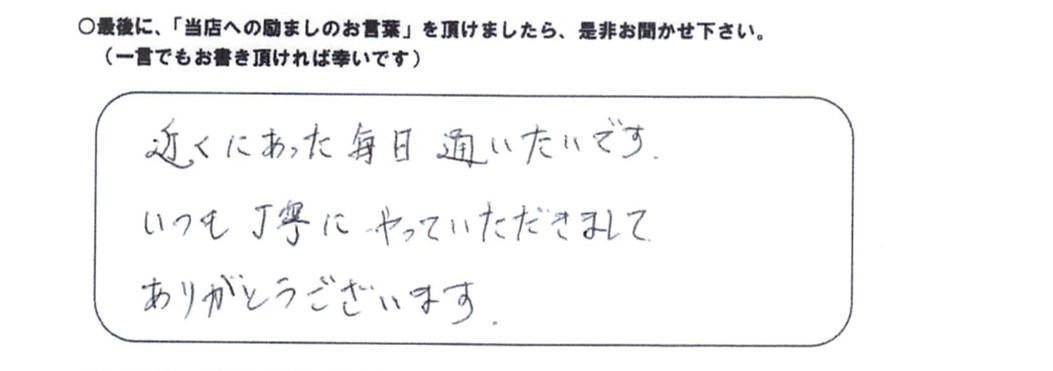 ○最後に、「当店への励ましのお言葉」を頂けましたら、是非お聞かせ下さい。
（一言でもお書き頂ければ幸いです）
近くにあった毎日通いたいです.
いつも丁寧にやっていただきまして
ありがとうございます.